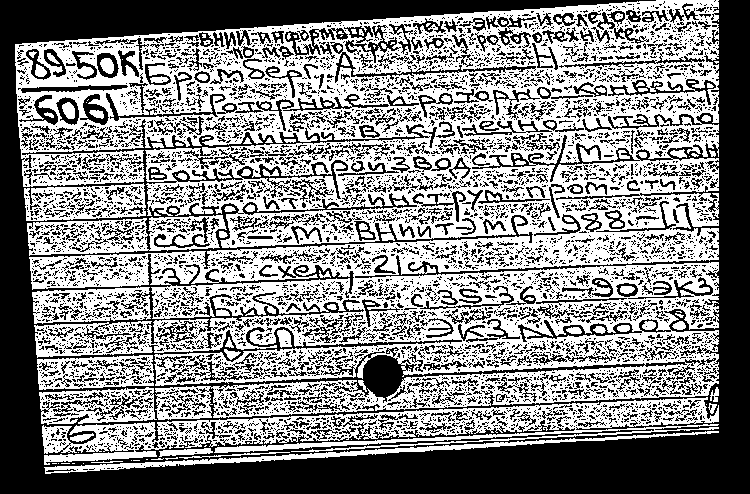 ВНИИ информации и техн.-экон. исследований
по машиностроению и робототехнике.
89-50К
6061
Бромберг, А Н
Роторные и роторно-конвейер
ные линии в кузнечно-штампо
вочном производстве / М-во стан
костроит. и инструм. пром-сти
СССР. — М.: ВНИИТЭМР, 1988. — [1],
37с.: схем.; 21 см.
Библиогр.: с. 35-36. — 90 экз
ДСП. ЭКЗ N 00008
6